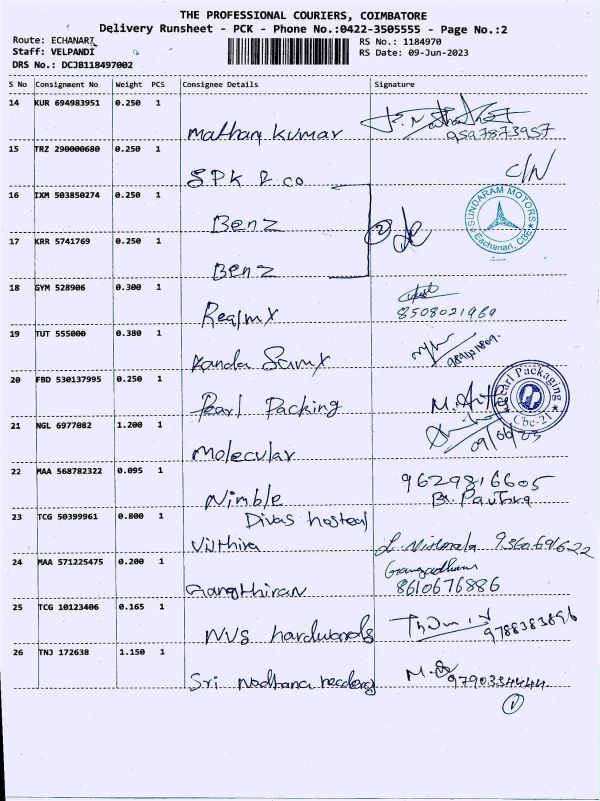 THE PROFESSIONAL COURIERS, COIMBATORE
Delivery Runsheet - PCK - Phone No.:0422-3505555 - Page No.:2
Route: ECHANARI
RS No.: 1184970
Staff: VELPANDI
RS Date: 09-Jun-2023
DRS No.: DCJB118497002
S No Consignment No Weight PCS Consignee Details Signature
14 KUR 694983951 0.250 1
Mathan kumar
9597873957
15 TRZ 290000680 0.250 1
SPK & co
C/N
16 IXM 503850274 0.250 1
Benz
2
SUNDARAM MOTORS
Eachanari, CBE
17 KRR 5741769 0.250 1
Benz
18 GYM 528906 0.300 1
Realmx
8508021969
19 TUT 555000 0.380 1
Kanda
20 FBD 530137995 0.250 1
Pearl Packing
Pearl Packaging
Cbe-21
21 NGL 6977082 1.200 1
09/06/23
Molecular
22 MAA 568782322 0.095 1
9629816605
Nimble
23 TCG 50399961 0.800 1
Divas hosteal
Vijthira
9360691622
24 MAA 571225475 0.200 1
Gangadharn
8610676886
25 TCG 10123406 0.165 1
NVS
9788383896
26 TNJ 172638 1.150 1
Sri
9790334444
1